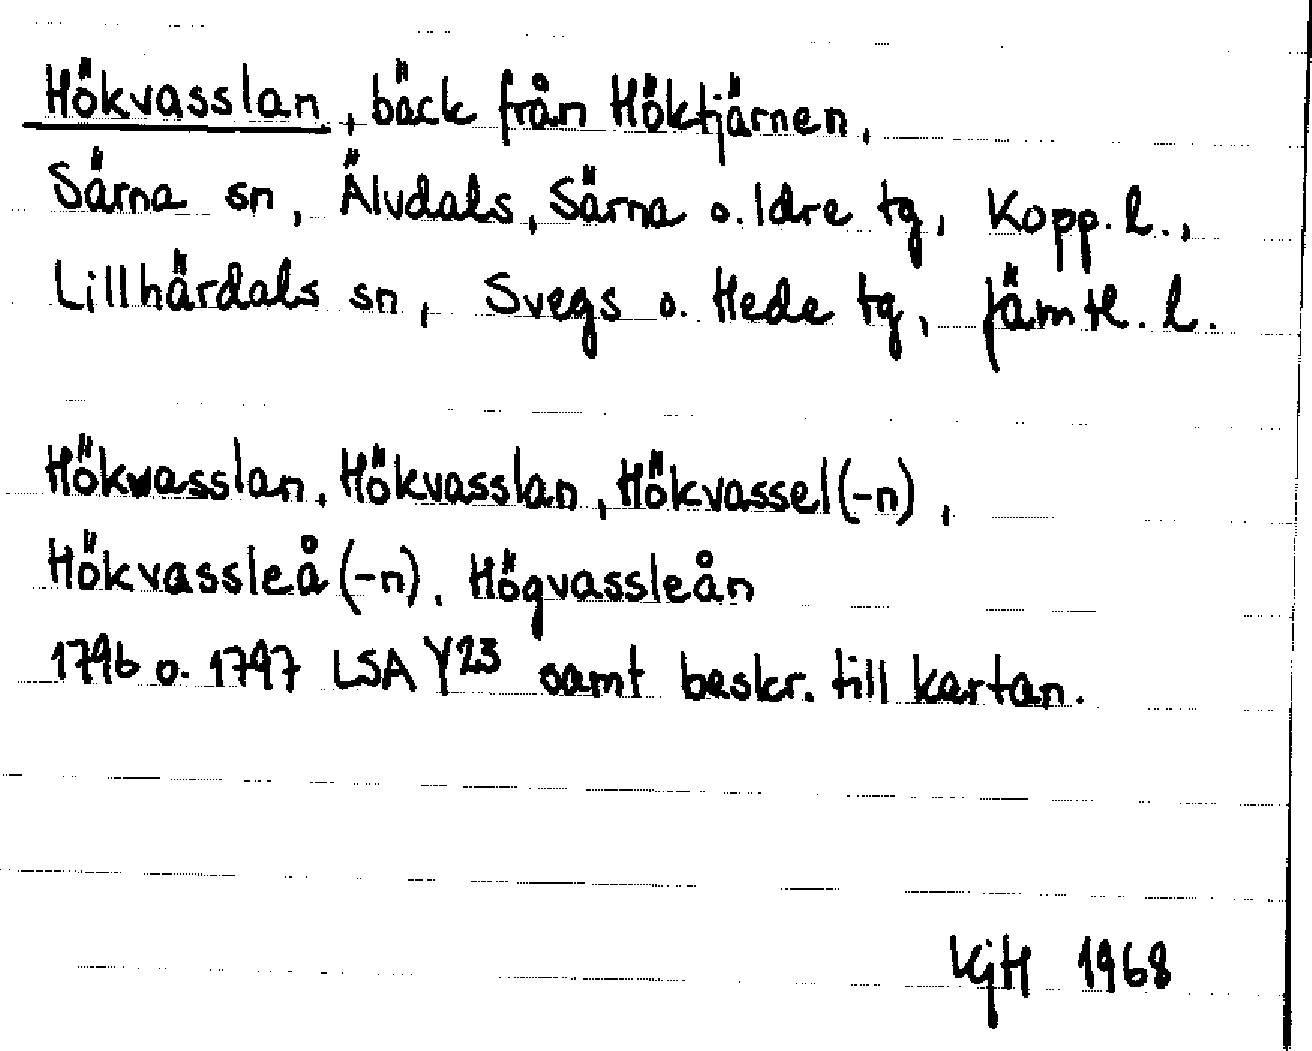 Hökvasslan, bäck från Höktjärnen,
Särna sn, Älvdals, Särna o. Idre tg, Kopp. l.,
Lillhärdals sn, Svegs o. Hede tg, Jämtl. l.
Hökwasslan, Hökvasslan, Hökvassel(-n),
Hökvassleå(-n), Högvassleån
1796 o. 1797 LSA Y23 samt beskr. till kartan.
KjH 1968